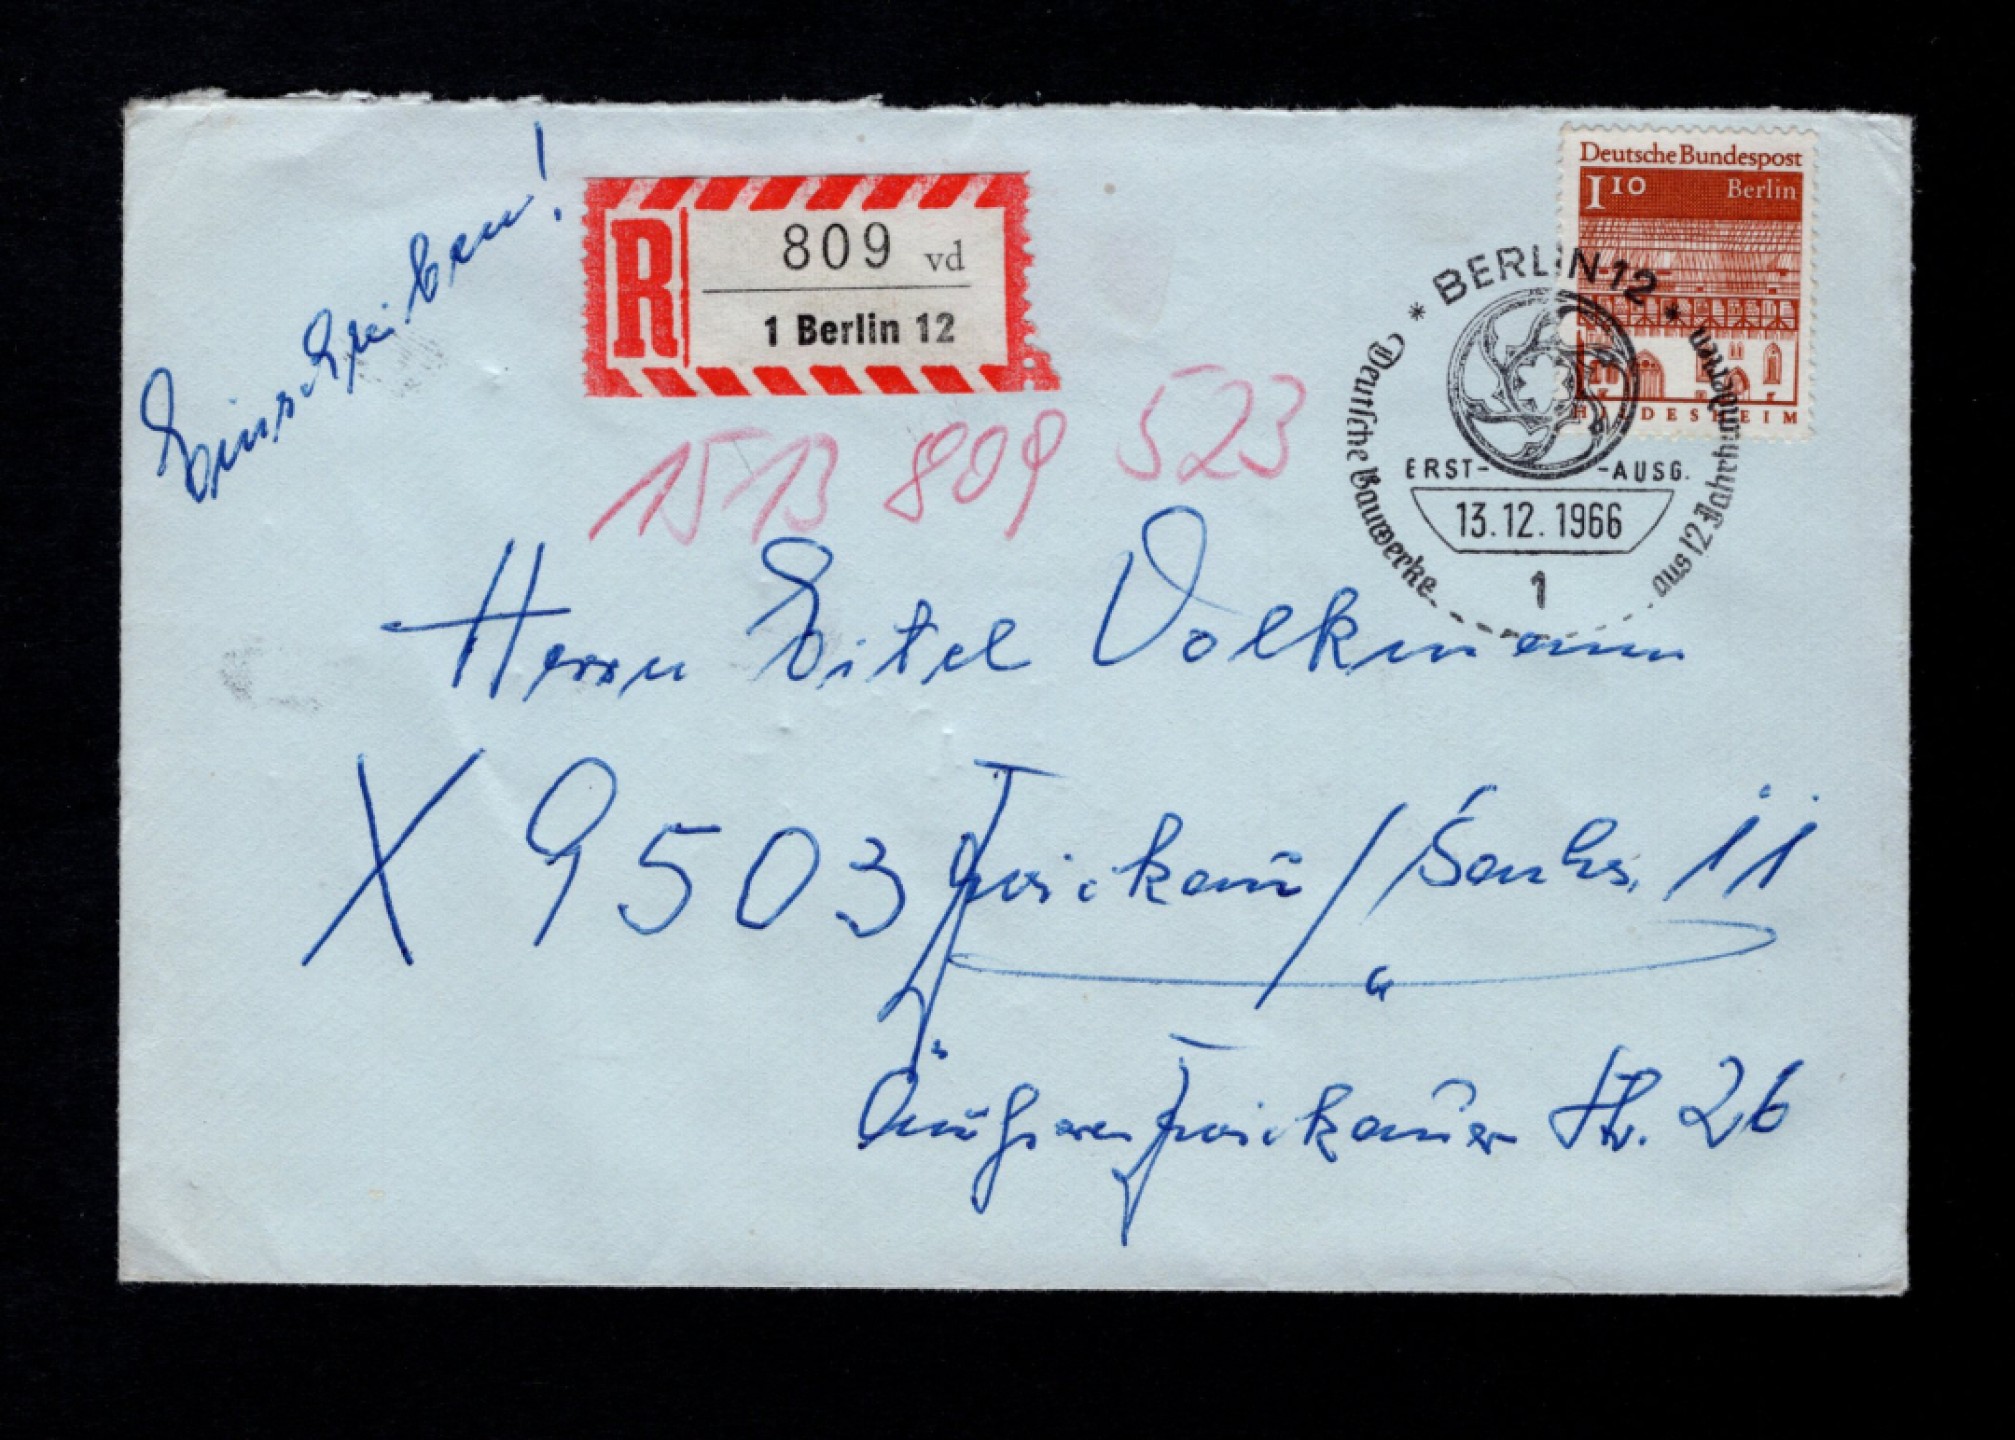 Einschreiben!
R
809 vd
1 Berlin 12
Deutsche Bundespost
110 Berlin
HILDESHEIM
* BERLIN 12 *
Deutsche Bauwerke aus 12 Jahrhunderten
ERST- -AUSG.
13.12.1966
1
1513 809 523
Herrn Eitel Volkmann
X 9503 Zwickau / Sachs. 11
Äußere Zwickauer Str. 26